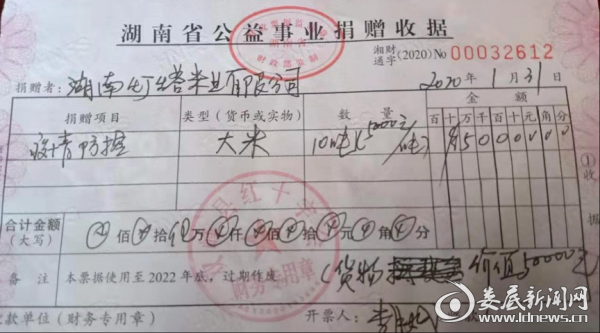 湖南省公益事业捐赠收据
湘财通字(2020) No 00032612
捐赠者: 湖南 米业有限公司 2020年1月31
捐赠项目 类型(货币或实物) 数量 金额
百十万千百十元角分
疫情防控 大米 10吨(5000元/吨) 500000
合计金额(大写) 佰 拾 万 仟 佰 拾 元 角 分
备注 本票据使用至2022年底,过期作废 (货物 价值50000元
款单位(财务专用章) 开票人:
娄底新闻网
www.ldnews.cn